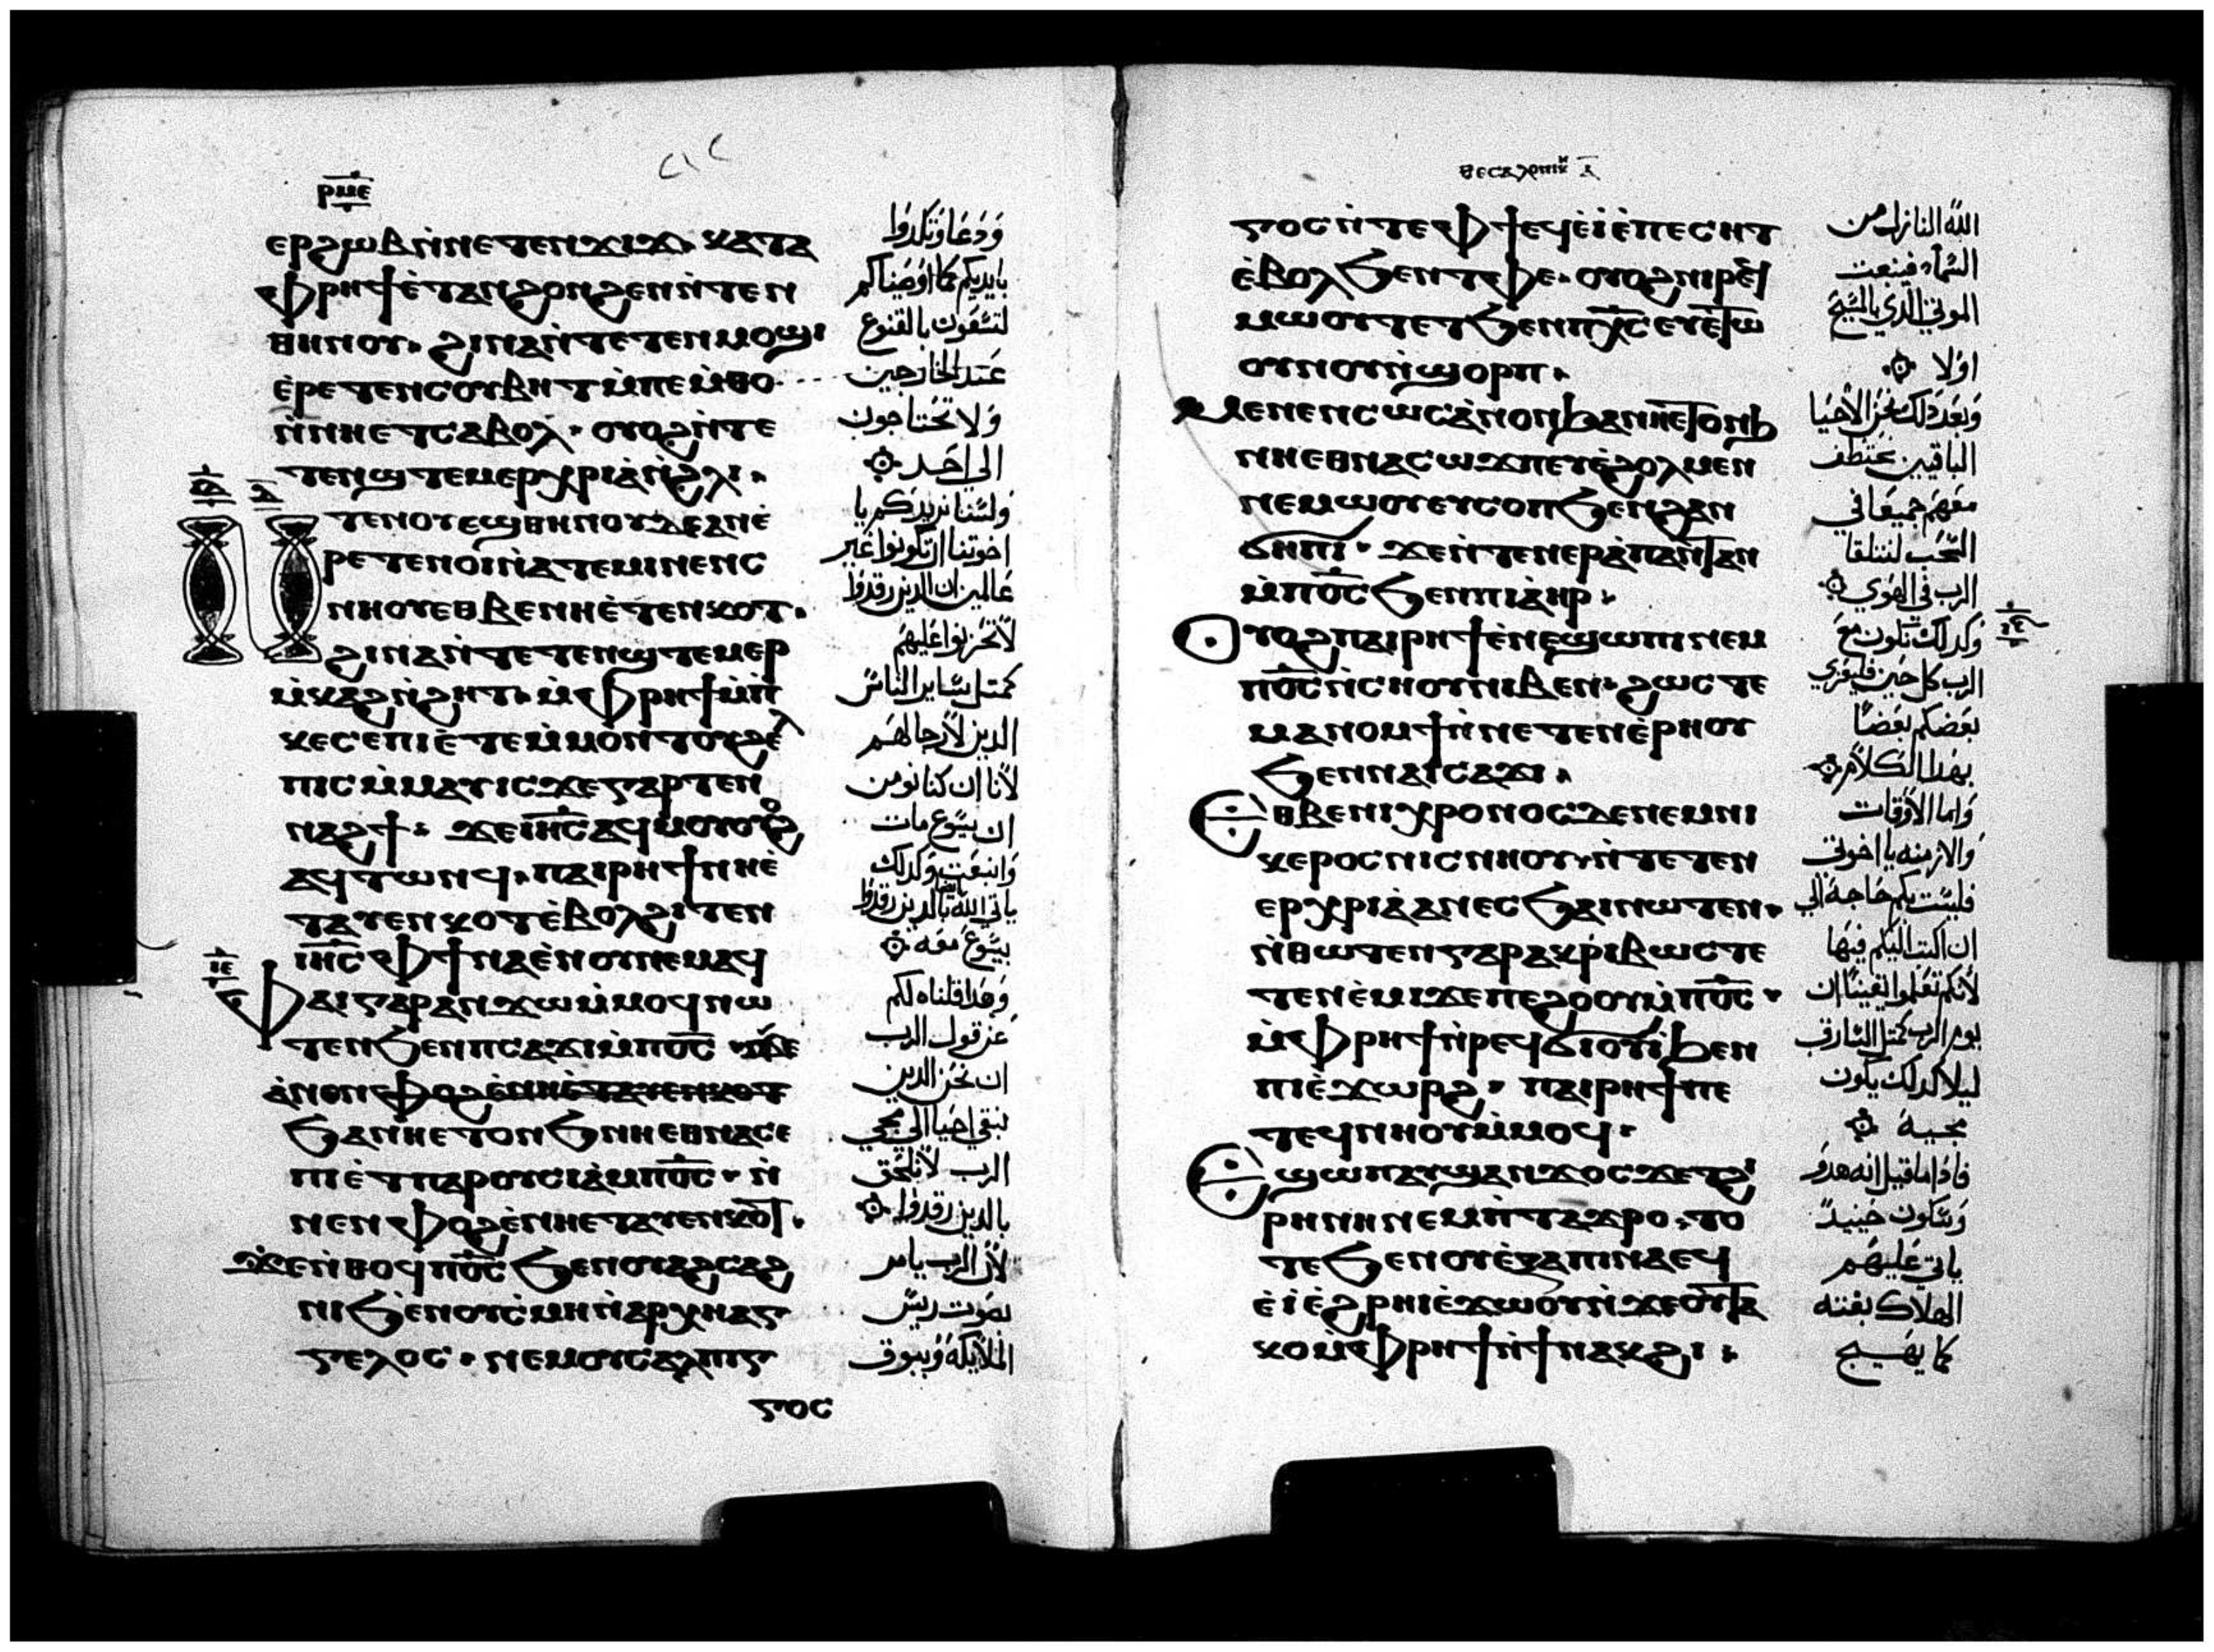 ⲣⲙⲉ
ⲉⲣϩⲱⲃ ⲛ̀ⲛⲉⲧⲉⲛϫⲓϫ. ⲕⲁⲧⲁ
ⲫⲣⲏϯ ⲉ̀ⲧⲁⲛϩⲟⲛϩⲉⲛ ⲛ̀ⲧⲉⲛ
ⲑⲏⲛⲟⲩ. ϩⲓⲛⲁ ⲛ̀ⲧⲉⲧⲉⲛⲙⲟϣⲓ
ⲉ̀ⲣⲉⲧⲉⲛⲥⲟⲩⲃⲏⲧ ⲙ̀ⲡⲉⲙ̀ⲑⲟ
ⲛ̀ⲛⲏⲉⲧⲥⲁⲃⲟⲗ. ⲟⲩⲟϩ ⲛ̀ⲧⲉ
ⲧⲉⲛϣⲧⲉⲙⲉⲣⲭⲣⲓⲁ̀ ⲛ̀ϩⲗⲓ.
ⲧⲉⲛⲟⲩⲉϣ ⲑⲏⲛⲟⲩ ⲇⲉ ⲁⲛ ⲉ̀
ⲣⲉⲧⲉⲛⲟⲓ ⲛ̀ⲁⲧⲉⲙⲓ ⲛⲉⲛⲥ
ⲛⲏⲟⲩ ⲉⲑⲃⲉ ⲛⲏⲉ̀ⲧⲉⲛⲕⲟⲧ.
ϩⲓⲛⲁ ⲛ̀ⲧⲉⲧⲉⲛϣⲧⲉⲙⲉⲣ
ⲙ̀ⲕⲁϩ ⲛ̀ϩⲏⲧ. ⲙ̀ⲫⲣⲏϯ ⲙ̀ⲡ
ⲕⲉⲥⲉⲡⲓ ⲉ̀ⲧⲉⲙ̀ⲙⲟⲛⲧⲟⲩ ϩⲉⲗ
ⲡⲓⲥ ⲙ̀ⲙⲁⲩ ⲓⲥϫⲉ ⲅⲁⲣ ⲧⲉⲛ
ⲛⲁϩϯ. ϫⲉ ⲓⲏⲥ ⲁϥⲙⲟⲩ ⲟⲩⲟϩ
ⲁϥⲧⲱⲛϥ. ⲡⲁⲓⲣⲏϯ ⲛⲏⲉ̀
ⲧⲁⲩⲉⲛⲕⲟⲧ ⲉ̀ⲃⲟⲗ ϩⲓⲧⲉⲛ
ⲓⲏⲥ ⲫϯ ⲛⲁⲉ̀ⲛⲟⲩ ⲛⲉⲙⲁϥ
ⲫⲁⲓ ⲅⲁⲣ ⲁⲛϫⲱ ⲙ̀ⲙⲟϥ ⲛⲱ
ⲧⲉⲛ ϧⲉⲛ ⲡⲥⲁϫⲓ ⲙ̀ⲡⲟ̅ⲥ̅ ϫⲉ
ⲁ̀ⲛⲟⲛ
ϧⲁ ⲛⲏⲉⲧⲟⲛϧ ⲛⲏⲉⲑⲛⲁⲥⲉ
ⲡⲓ ⲉ̀ⲧⲡⲁⲣⲟⲩⲥⲓⲁ̀ ⲙ̀ⲡⲟ̅ⲥ̅. ⲛ̀
ⲛⲉⲛⲫⲟϩ ⲉ̀ⲛⲏⲉⲧⲁⲩⲉⲛⲕⲟⲧ.
ϫⲉ ⲛ̀ⲑⲟϥ ⲡⲟ̅ⲥ̅ ϧⲉⲛ ⲟⲩⲁϩⲥⲁϩ
ⲛⲓ ϧⲉⲛ ⲟⲩⲥ̀ⲙⲏ ⲛ̀ⲁⲣⲭⲏⲁⲅ
ⲅⲉⲗⲟⲥ. ⲛⲉⲙ ⲟⲩⲥⲁⲗⲡⲓⲅ
ⲅⲟⲥ
وَدَعَا وَتكدوا
بايديكم كما اوصيناكم
لتسعون بالقنوع
عند الخارجين
ولا تحتاجون
الى احد
ولسنا نريدكم يا
اخوتنا ان تكونوا غير
عالمين ان الدين رقدوا
لا تحزنوا عليهم
كمتل ساير الناس
الدين لا رجا لهم
لانا ان كنا نومن
ان يسوع مات
وانبعت وكدلك
ياتي الله بالدين رقدوا
يسوع معه
وهدا قلناه لكم
عن قول الرب
ان نحن الدين
نبقى احيا الى مجي
الرب لا نلحق
بالدين رقدوا
لان الرب يامر
بصوت ريس
الملايكة وببوق
ⲑⲉⲥⲁⲗⲟⲛⲓⲕ ⲁ
ⲅⲟⲥ ⲛ̀ⲧⲉ ⲫϯ ⲉϥⲉ̀ⲓ̀ ⲉ̀ⲡⲉⲥⲏⲧ
ⲉ̀ⲃⲟⲗ ϧⲉⲛ ⲧⲫⲉ. ⲟⲩⲟϩ ⲛⲓⲣⲉϥ
ⲙⲱⲟⲩⲧ ⲉⲧϧⲉⲛ ⲡⲭ̅ⲥ̅ ⲉⲩⲉ̀ⲧⲱ
ⲟⲩⲛⲟⲩ ⲛ̀ϣⲟⲣⲡ.
ⲙⲉⲛⲉⲛⲥⲱⲥ ⲁ̀ⲛⲟⲛ ϧⲁ ⲛⲏⲉⲧⲟⲛϧ
ⲛⲏⲉⲑⲛⲁⲥⲱϫⲡ ⲉⲩⲉ̀ϩⲟⲗⲙⲉⲛ
ⲛⲉⲙⲱⲟⲩ ⲉⲩⲥⲟⲡ ϧⲉⲛ ϩⲁⲛ
ϭⲏⲡⲓ. ϫⲉ ⲛ̀ⲧⲉⲛⲉⲣⲁ̀ⲡⲁⲛⲧⲁⲛ
ⲙ̀ⲡⲟ̅ⲥ̅ ϧⲉⲛ ⲡⲓⲁ̀ⲏⲣ.
ⲟⲩⲟϩ ⲡⲁⲓⲣⲏϯ ⲉ̀ⲛⲉϣⲱⲡⲓ ⲛⲉⲙ
ⲡⲟ̅ⲥ̅ ⲛ̀ⲥⲛⲟⲩ ⲛⲓⲃⲉⲛ. ϩⲱⲥⲧⲉ
ⲙⲁⲛⲟⲙϯ ⲛ̀ⲛⲉⲧⲉⲛⲉ̀ⲣⲏⲟⲩ
ϧⲉⲛ ⲛⲁⲓⲥⲁϫⲓ.
ⲉⲑⲃⲉ ⲛⲓⲭⲣⲟⲛⲟⲥ ⲇⲉ ⲛⲉⲙ ⲛⲓ
ⲕⲉⲣⲟⲥ ⲛⲓⲥⲛⲏⲟⲩ ⲛ̀ⲧⲉⲧⲉⲛ
ⲉⲣⲭⲣⲓⲁ̀ ⲁⲛ ⲉⲥϧⲁⲓ ⲛⲱⲧⲉⲛ.
ⲛ̀ⲑⲱⲧⲉⲛ ⲅⲁⲣ ⲁⲕⲣⲓⲃⲱⲥ ⲧⲉ
ⲧⲉⲛⲉ̀ⲙⲓ ϫⲉ ⲡⲉϩⲟⲟⲩ ⲙ̀ⲡⲟ̅ⲥ̅.
ⲙ̀ⲫⲣⲏϯ ⲛ̀ⲣⲉϥϭⲓⲟⲩⲓ̀ ϧⲉⲛ
ⲡⲓⲉ̀ϫⲱⲣϩ. ⲡⲁⲓⲣⲏϯ ⲡⲉ
ⲧⲉϥⲛⲏⲟⲩ ⲙ̀ⲙⲟϥ.
ⲉϣⲱⲡ ⲁⲩϣⲁⲛϫⲟⲥ ϫⲉ ⲧϩⲓ
ⲣⲏⲛⲏ ⲛⲉⲙ ⲡ̀ⲧⲁϫⲣⲟ. ⲧⲟ
ⲧⲉ ϧⲉⲛ ⲟⲩⲉ̀ⲝⲁⲡⲓⲛⲁ ⲉϥ
ⲉ̀ⲓ̀ ⲉ̀ϩⲣⲏⲓ ⲉ̀ϫⲱⲟⲩ ⲛ̀ϫⲉ ⲟⲩⲧⲁ
ⲕⲟ ⲙ̀ⲫⲣⲏϯ ⲛ̀ϯⲛⲁⲕϩⲓ.
الله النازل من
السماء فينبعت
الموتى الدي بالمسيح
اولا
وبعد دلك نحن الاحيا
الباقيين نختطف
معهم جميعا في
السحب لنتلقا
الرب في الهوي
وكدلك نكون مع
الرب كل حين فليعزي
بعضكم بعضا
بهدا الكلام
واما الاوقات
والازمنه يا اخوتي
فليست بكم حاجة الي
ان اكتب اليكم فيها
لانكم تعلموا يقينا ان
يوم الرب كمتل السارق
ليلا كدلك يكون
مجيه
فادا ما قيل انه هدو
وسكون حينيد
ياتي عليهم
الهلاك بغته
كما يهيج